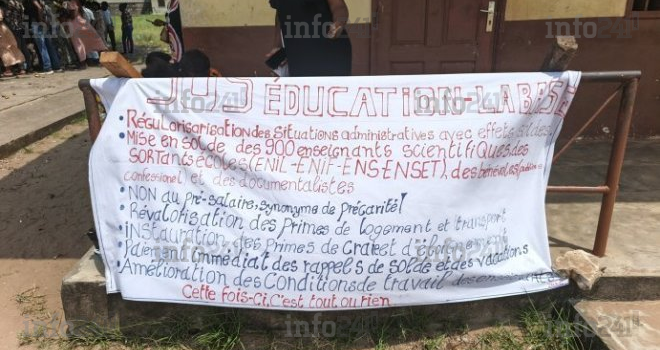 SOS EDUCATION-LABASE
• Régulorisarisation des situations administratives avec effets
• Mise en solde des 900 enseignants scientifiques, des
SORtants écoles (ENIL-ENIF-ENS ENSET), des
confessionel et des documentalistes
• NON au pré-salaire, synonyme de précarité!
• Révalorisation des primes de logement et transport
• instauration des primes de craie et
• Paiement immédiat des rappels de solde et des vacations
• Amélioration des Conditions de travail des
Cette fois-ci, C'est tout ou rien
info241